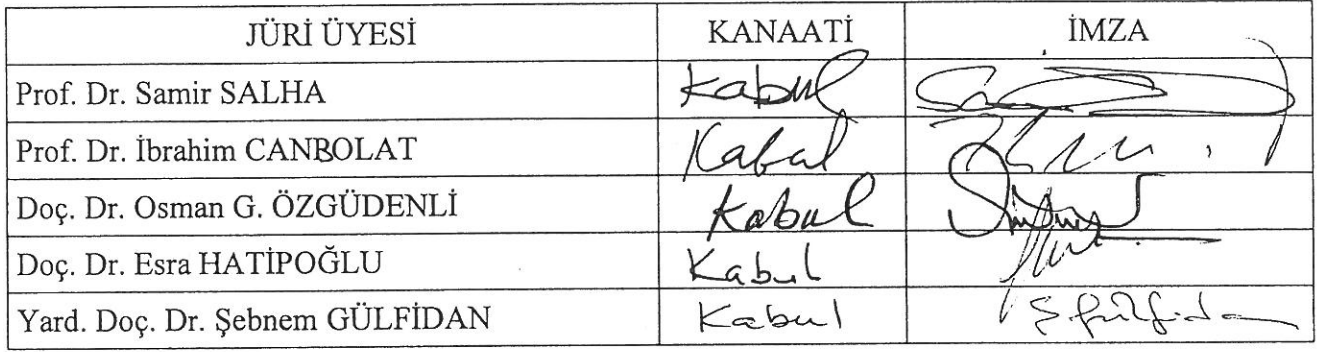 JÜRİ ÜYESİ KANAATİ İMZA
Prof. Dr. Samir SALHA Kabul
Prof. Dr. İbrahim CANBOLAT Kabul
Doç. Dr. Osman G. ÖZGÜDENLİ Kabul
Doç. Dr. Esra HATİPOĞLU Kabul
Yard. Doç. Dr. Şebnem GÜLFİDAN Kabul Ş. Gülfidan